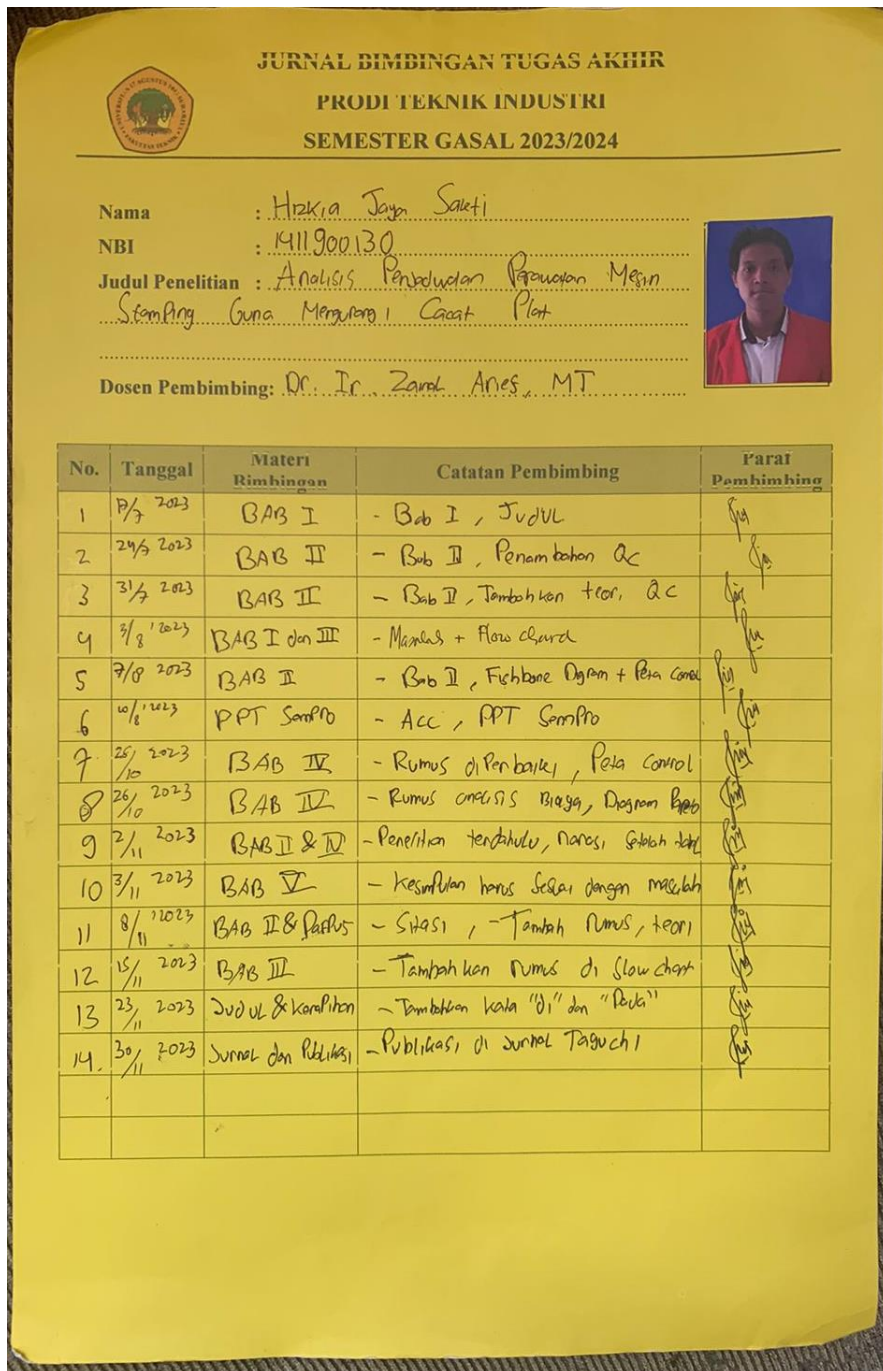 JURNAL BIMBINGAN TUGAS AKHIR
PRODI TEKNIK INDUSTRI
SEMESTER GASAL 2023/2024
Nama : Hizkia Jaya Sakti
NBI : 1411900130
Judul Penelitian : Analisis Penjadwalan Perawatan Mesin
Stamping Guna Mengurangi Cacat Plat
Dosen Pembimbing: Dr. Ir. Zainal Arief, MT
No. Tanggal Materi Bimbingan Catatan Pembimbing Paraf Pembimbing
1 /7 2023 BAB I - Bab I, Judul
2 24/7 2023 BAB II - Bab II, Penambahan QC
3 31/7 2023 BAB II - Bab II, Tambahkan teori QC
4 /8 2023 BAB I dan III - Masalah + Flow chard
5 7/8 2023 BAB II - Bab II, Fishbone Digram + Peta Control
6 10/8 2023 PPT SemPro - Acc, PPT SemPro
7 25/10 2023 BAB IV - Rumus diPerbaiki, Peta Control
8 26/10 2023 BAB IV - Rumus analisis Biaya, Diagram Pareto
9 2/11 2023 BAB II & IV - Penelitian terdahulu, narasi Setelah tabel
10 3/11 2023 BAB V - Kesimpulan harus Sesuai dengan masalah
11 8/11 2023 BAB II & DaPus - Sitasi, - Tambah rumus, teori
12 15/11 2023 BAB III - Tambahkan rumus di flowchart
13 23/11 2023 Judul & KeraPihan - Tambahkan kata "di" dan "Pada"
14. 30/11 2023 Jurnal dan Publikasi - Publikasi di Jurnal Taguchi